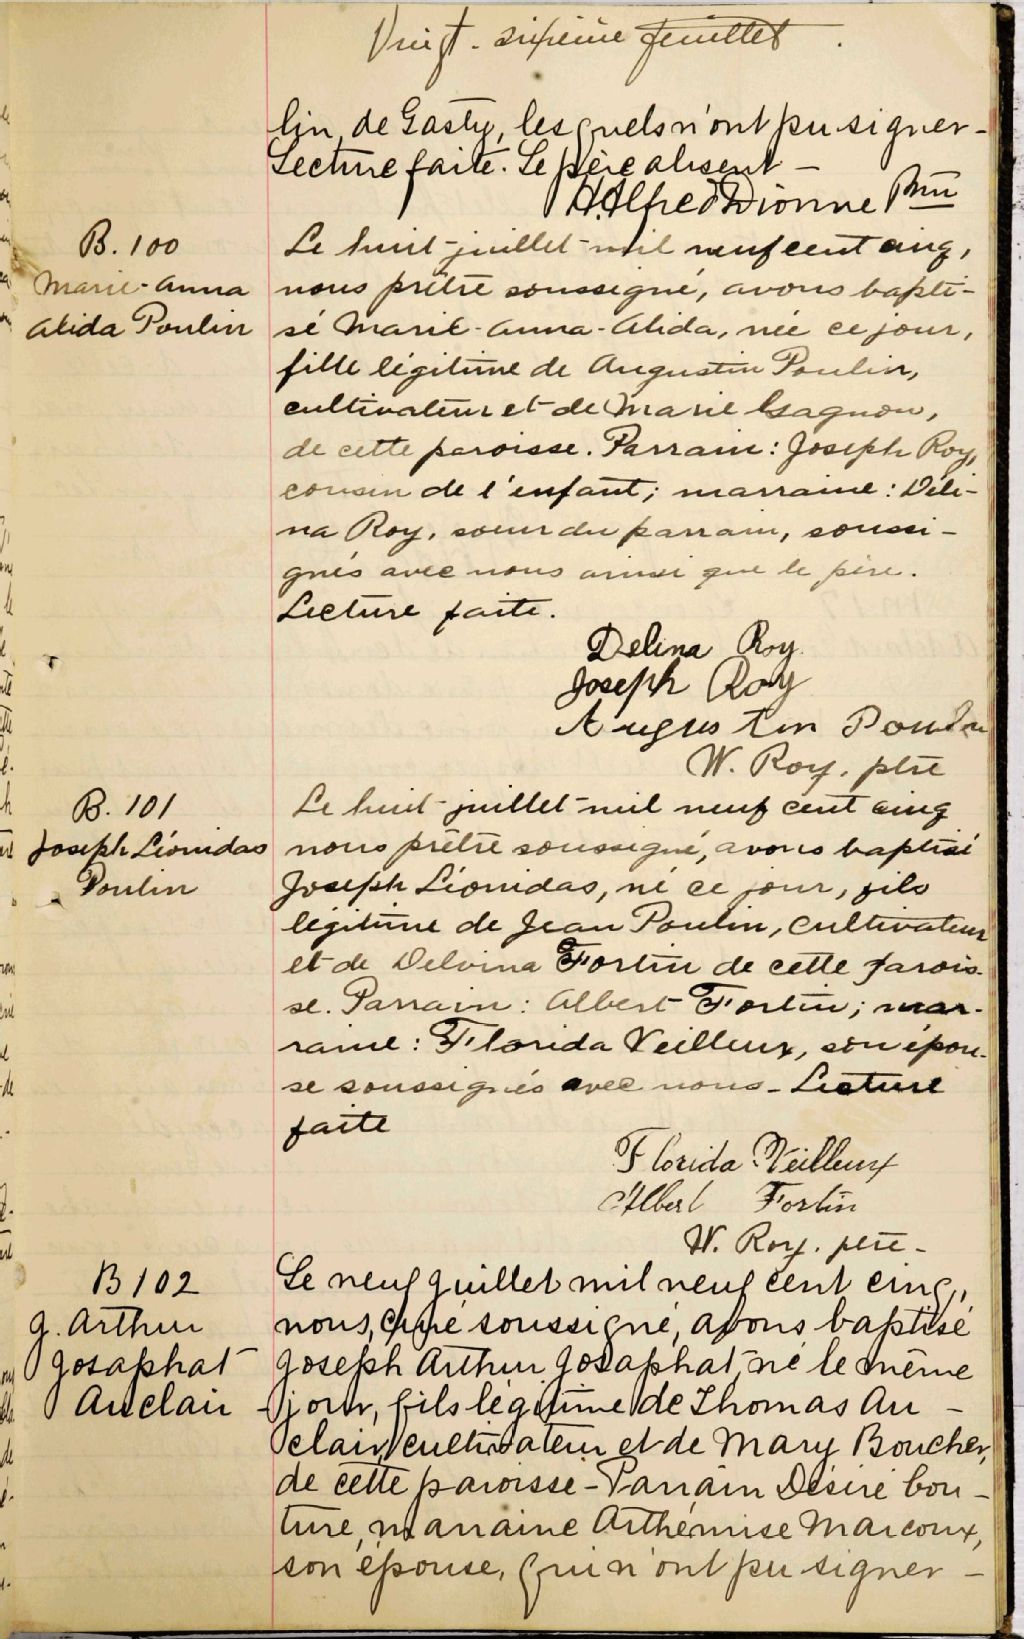 Vingt-sixième feuillet.
lin, de Gasty, lesquels n'ont pu signer -
Lecture faite. Le père absent -
H. Alfred Dionne Ptre
B. 100
Marie-Anna
Alida Poulin
Le huit juillet mil neuf cent cinq,
nous prêtre soussigné, avons bapti-
sé Marie-Anna-Alida, née ce jour,
fille légitime de Augustin Poulin,
cultivateur et de Marie Gagnon,
de cette paroisse. Parrain: Joseph Roy,
cousin de l'enfant; marraine: Déli-
na Roy, soeur du parrain, soussi-
gnés avec nous ainsi que le père.
Lecture faite.
Delina Roy
Joseph Roy
Augustin Poulin
W. Roy. ptre
B. 101
Joseph Léonidas
Poulin
Le huit juillet mil neuf cent cinq
nous prêtre soussigné, avons baptisé
Joseph Léonidas, né ce jour, fils
légitime de Jean Poulin, cultivateur
et de Delvina Fortin de cette parois-
se. Parrain: Albert Fortin; mar-
raine: Florida Veilleux, son épou-
se soussignés avec nous - Lecture
faite
Florida Veilleux
Albert Fortin
W. Roy. ptre -
B 102
J. Arthur
Josaphat
Auclair -
Le neuf juillet mil neuf cent cinq,
nous, curé soussigné, avons baptisé
Joseph Arthur Josaphat, né le même
jour, fils légitime de Thomas Au -
clair, cultivateur et de Mary Boucher,
de cette paroisse - Parrain Désiré Cou -
ture, marraine Arthémise Marcoux,
son épouse, qui n'ont pu signer -